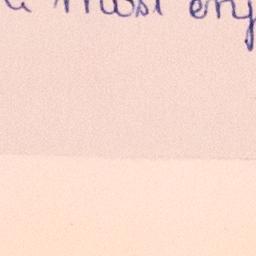 a most enj